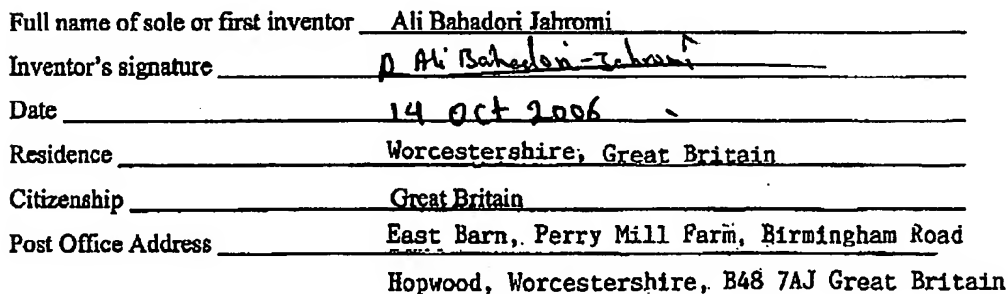 Full name of sole or first inventor Ali Bahadori Jahromi
Inventor's signature Ali Bahadori-Jahromi
Date 14 Oct 2006
Residence Worcestershire, Great Britain
Citizenship Great Britain
Post Office Address East Barn, Perry Mill Farm, Birmingham Road
Hopwood, Worcestershire, B48 7AJ Great Britain